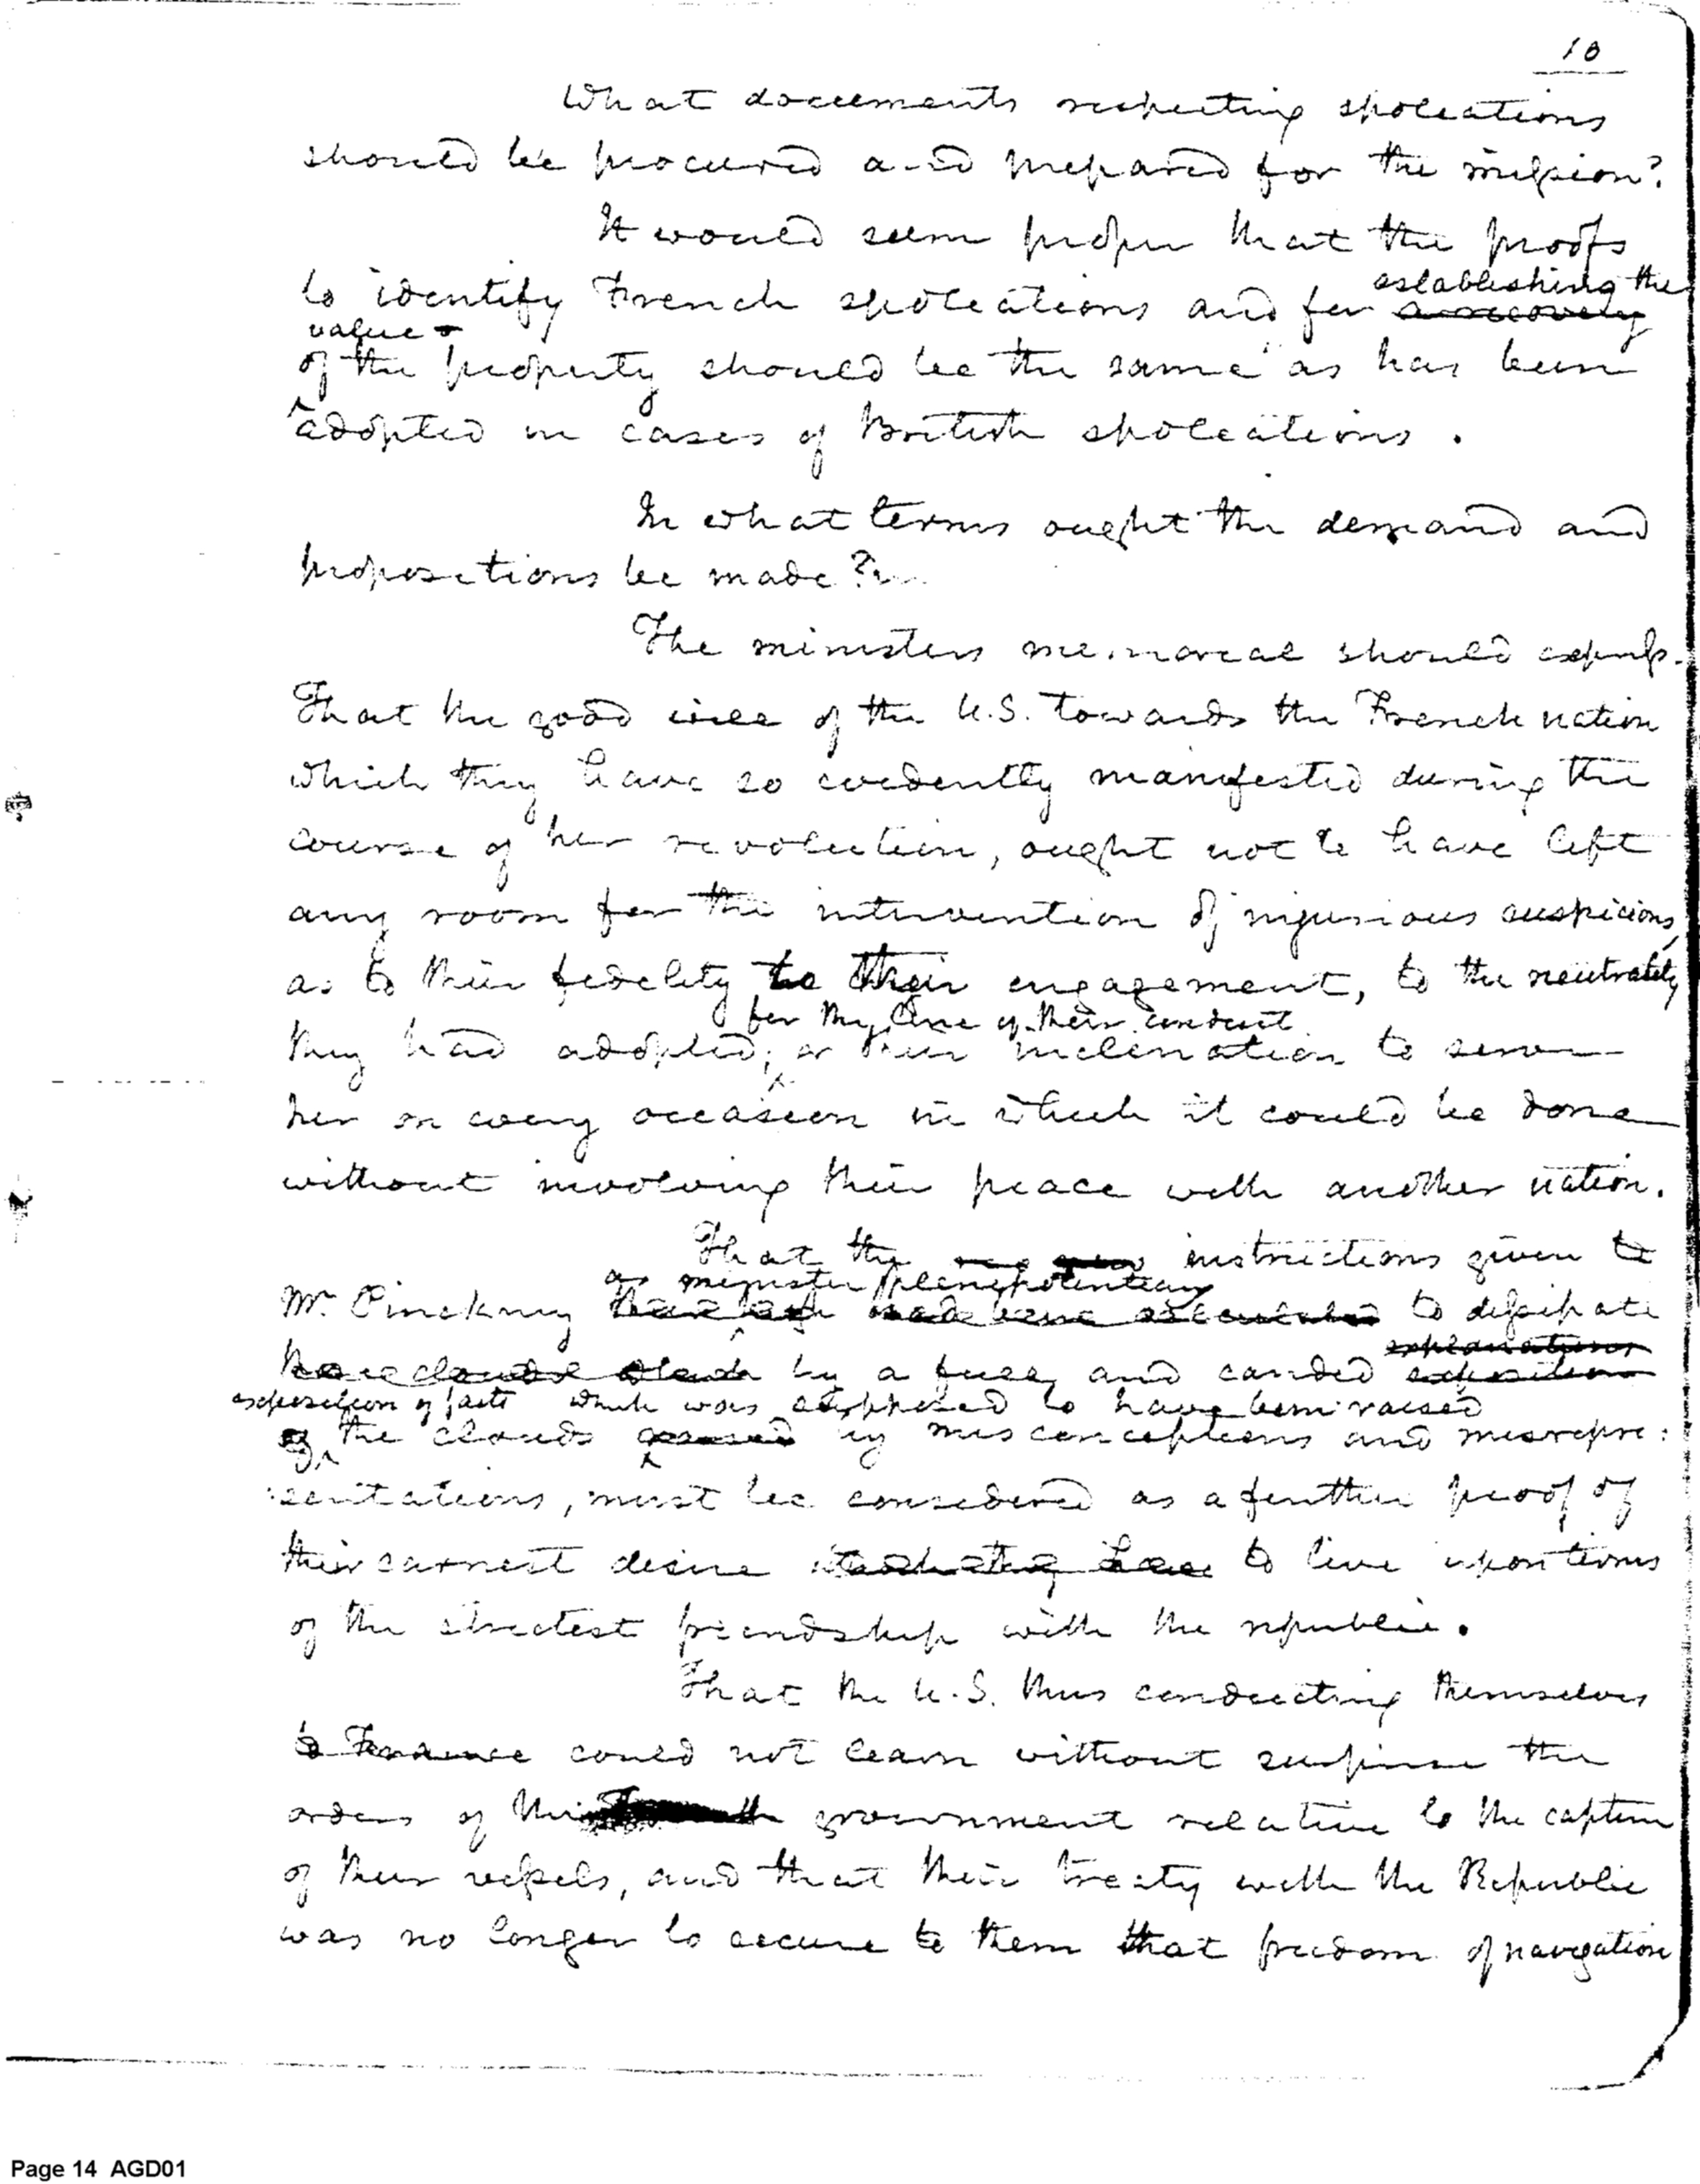 10
What documents respecting spoliations
should be procured and prepared for the mission?
It would seem proper that the proofs
establishing the
to identify French spoliations and for a recovery
value
of the property should be the same as has been
adopted in cases of British spoliations.
In what terms ought the demand and
propositions be made?
The ministers memorial should express.
That the good will of the U.S. towards the French nation
which they have so evidently manifested during the
course of her revolution, ought not to have left
any room for the intervention of injurious suspicions,
as to their fidelity to their engagement, to the neutrality
for the line of their conduct
they had adopted; or their inclination to serve
her on every occasion in which it could be done
without involving their peace with another nation.
That the instructions given to
as minister plenipotentiary
Mr. Pinckney to dissipate
explanations
by a full and candid exposition
exposition of facts which was supposed to have been raised
of the clouds by misconceptions and misrepre:
:sentations, must be considered as a further proof of
their earnest desire to live upon terms
of the strictest friendship with the republic.
That the U.S. thus conducting themselves
to France could not learn without surprise the
orders of the government relative to the capture
of their vessels, and that their treaty with the Republic
was no longer to secure to them that freedom of navigation
Page 14 AGD01